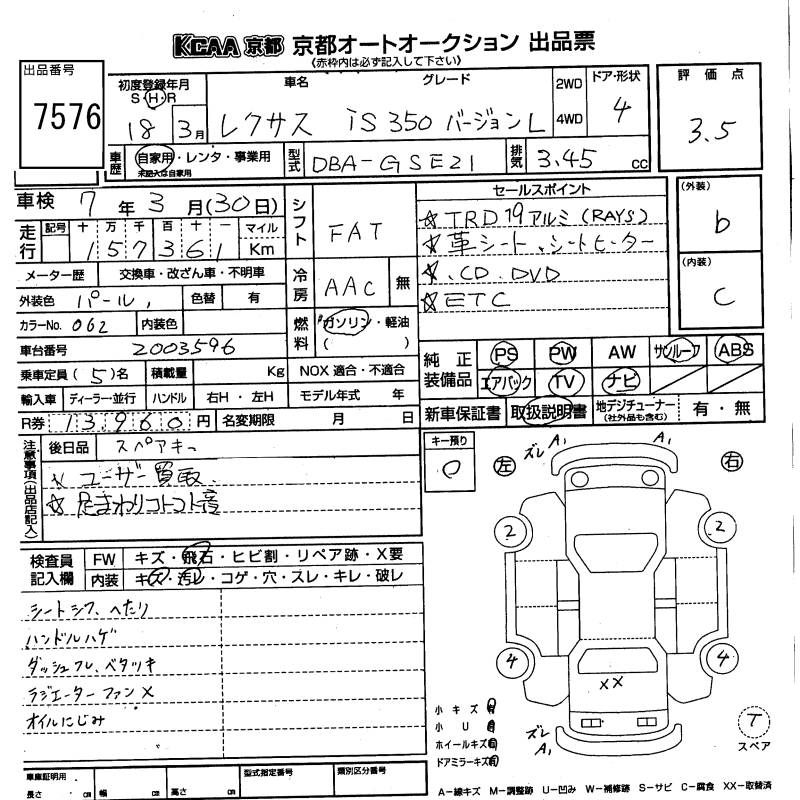 KCAA 京都 京都オートオークション 出品票
(赤枠内は必ず記入して下さい)
出品番号
7576
初度登録年月
S・H・R
18 3月
車名 グレード
レクサス iS350 バージョンL
2WD
4WD
ドア・形状
4
評価点
3.5
車歴
自家用・レンタ・事業用
未記入は自家用
型式
DBA-GSE21
排気
3.45 cc
車検 7年3月(30日)
走行
記号 十 万 千 百 十 一 マイル
157361 Km
シフト
FAT
セールスポイント
☆TRD19アルミ(RAYS)
☆革シート、シートヒーター
☆.CD.DVD
☆ETC
(外装)
b
(内装)
C
メーター歴 交換車・改ざん車・不明車
冷房
AAC 無
外装色 パール, 色替 有
カラーNo. 062 内装色
燃料
ガソリン・軽油
( )
車台番号 2003596
乗車定員 (5)名 積載量 Kg NOX 適合・不適合
輸入車 ディーラー・並行 ハンドル 右H・左H モデル年式 年
R券 13960円 名変期限 月 日
純正装備品
PS PW AW サンルーフ ABS
エアバック TV ナビ
新車保証書 取扱説明書 地デジチューナー(社外品も含む) 有・無
注意事項(出品店記入)
後日品 スペアキー
☆ユーザー買取.
☆足まわりコトコト音
キー預り
0
検査員記入欄
FW キズ・飛石・ヒビ割・リペア跡・X要
内装 キズ・汚レ・コゲ・穴・スレ・キレ・破レ
シートシワ、ヘたり
ハンドルハゲ
ダッシュフレ、ベタツキ
ラジエーターファンX
オイルにじみ
左 ズレ A1 A1 右
2 2
4 4
XX
ズレ A1
小キズ 有
小U 有
ホイールキズ 有
ドアミラーキズ 有
T
スペア
車庫証明用
長さ cm 幅 cm 高さ cm
型式指定番号 類別区分番号
A-線キズ M-調整跡 U-凹み W-補修跡 S-サビ C-腐食 XX-取替済